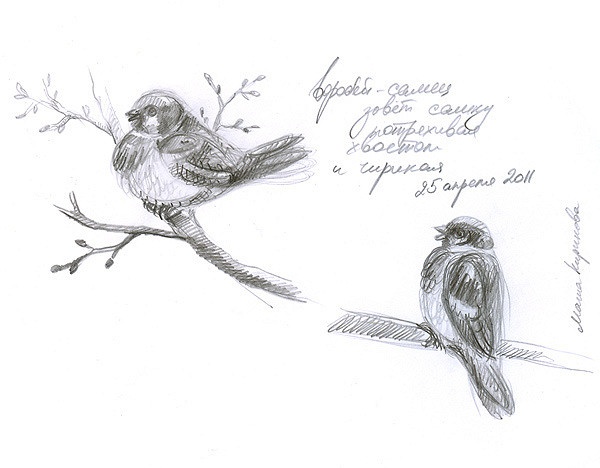 воробей-самец
зовёт самку
потряхивая
хвостом
и чирикая
25 апреля 2011
Маша Кирикова